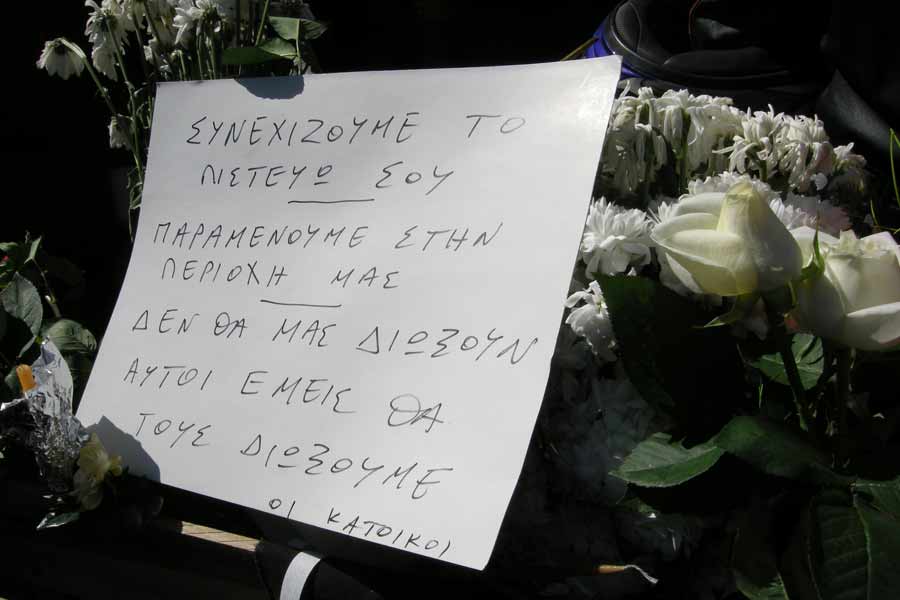 ΣΥΝΕΧΙΖΟΥΜΕ ΤΟ
ΠΙΣΤΕΥΩ ΣΟΥ
ΠΑΡΑΜΕΝΟΥΜΕ ΣΤΗΝ
ΠΕΡΙΟΧΗ ΜΑΣ
ΔΕΝ ΘΑ ΜΑΣ ΔΙΩΞΟΥΝ
ΑΥΤΟΙ ΕΜΕΙΣ ΘΑ
ΤΟΥΣ ΔΙΩΞΟΥΜΕ
ΟΙ ΚΑΤΟΙΚΟΙ